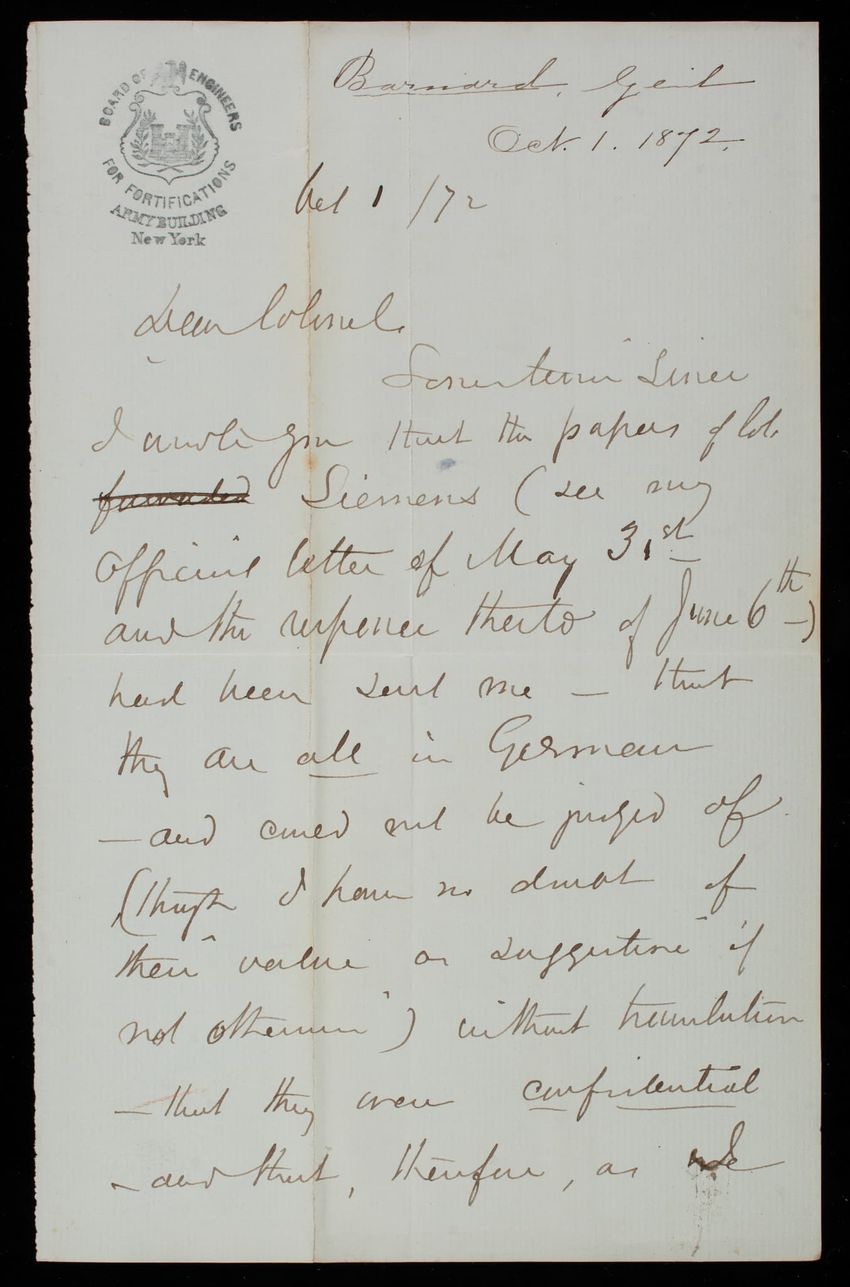 BOARD OF ENGINEERS
FOR FORTIFICATIONS
ARMY BUILDING
New York
Barnard, Genl
Oct. 1. 1872.
Oct 1 /72
Dear Colonel,
Some time since
I wrote you that the papers of Col.
forwarded Siemens (see my
official letter of May 31st
and the response thereto of June 6th)
had been sent me – that
they are all in German
– and could not be judged of
(though I have no doubt of
their "value as suggestive if
not otherwise") without translation
– that they were confidential
– and that, therefore, as I